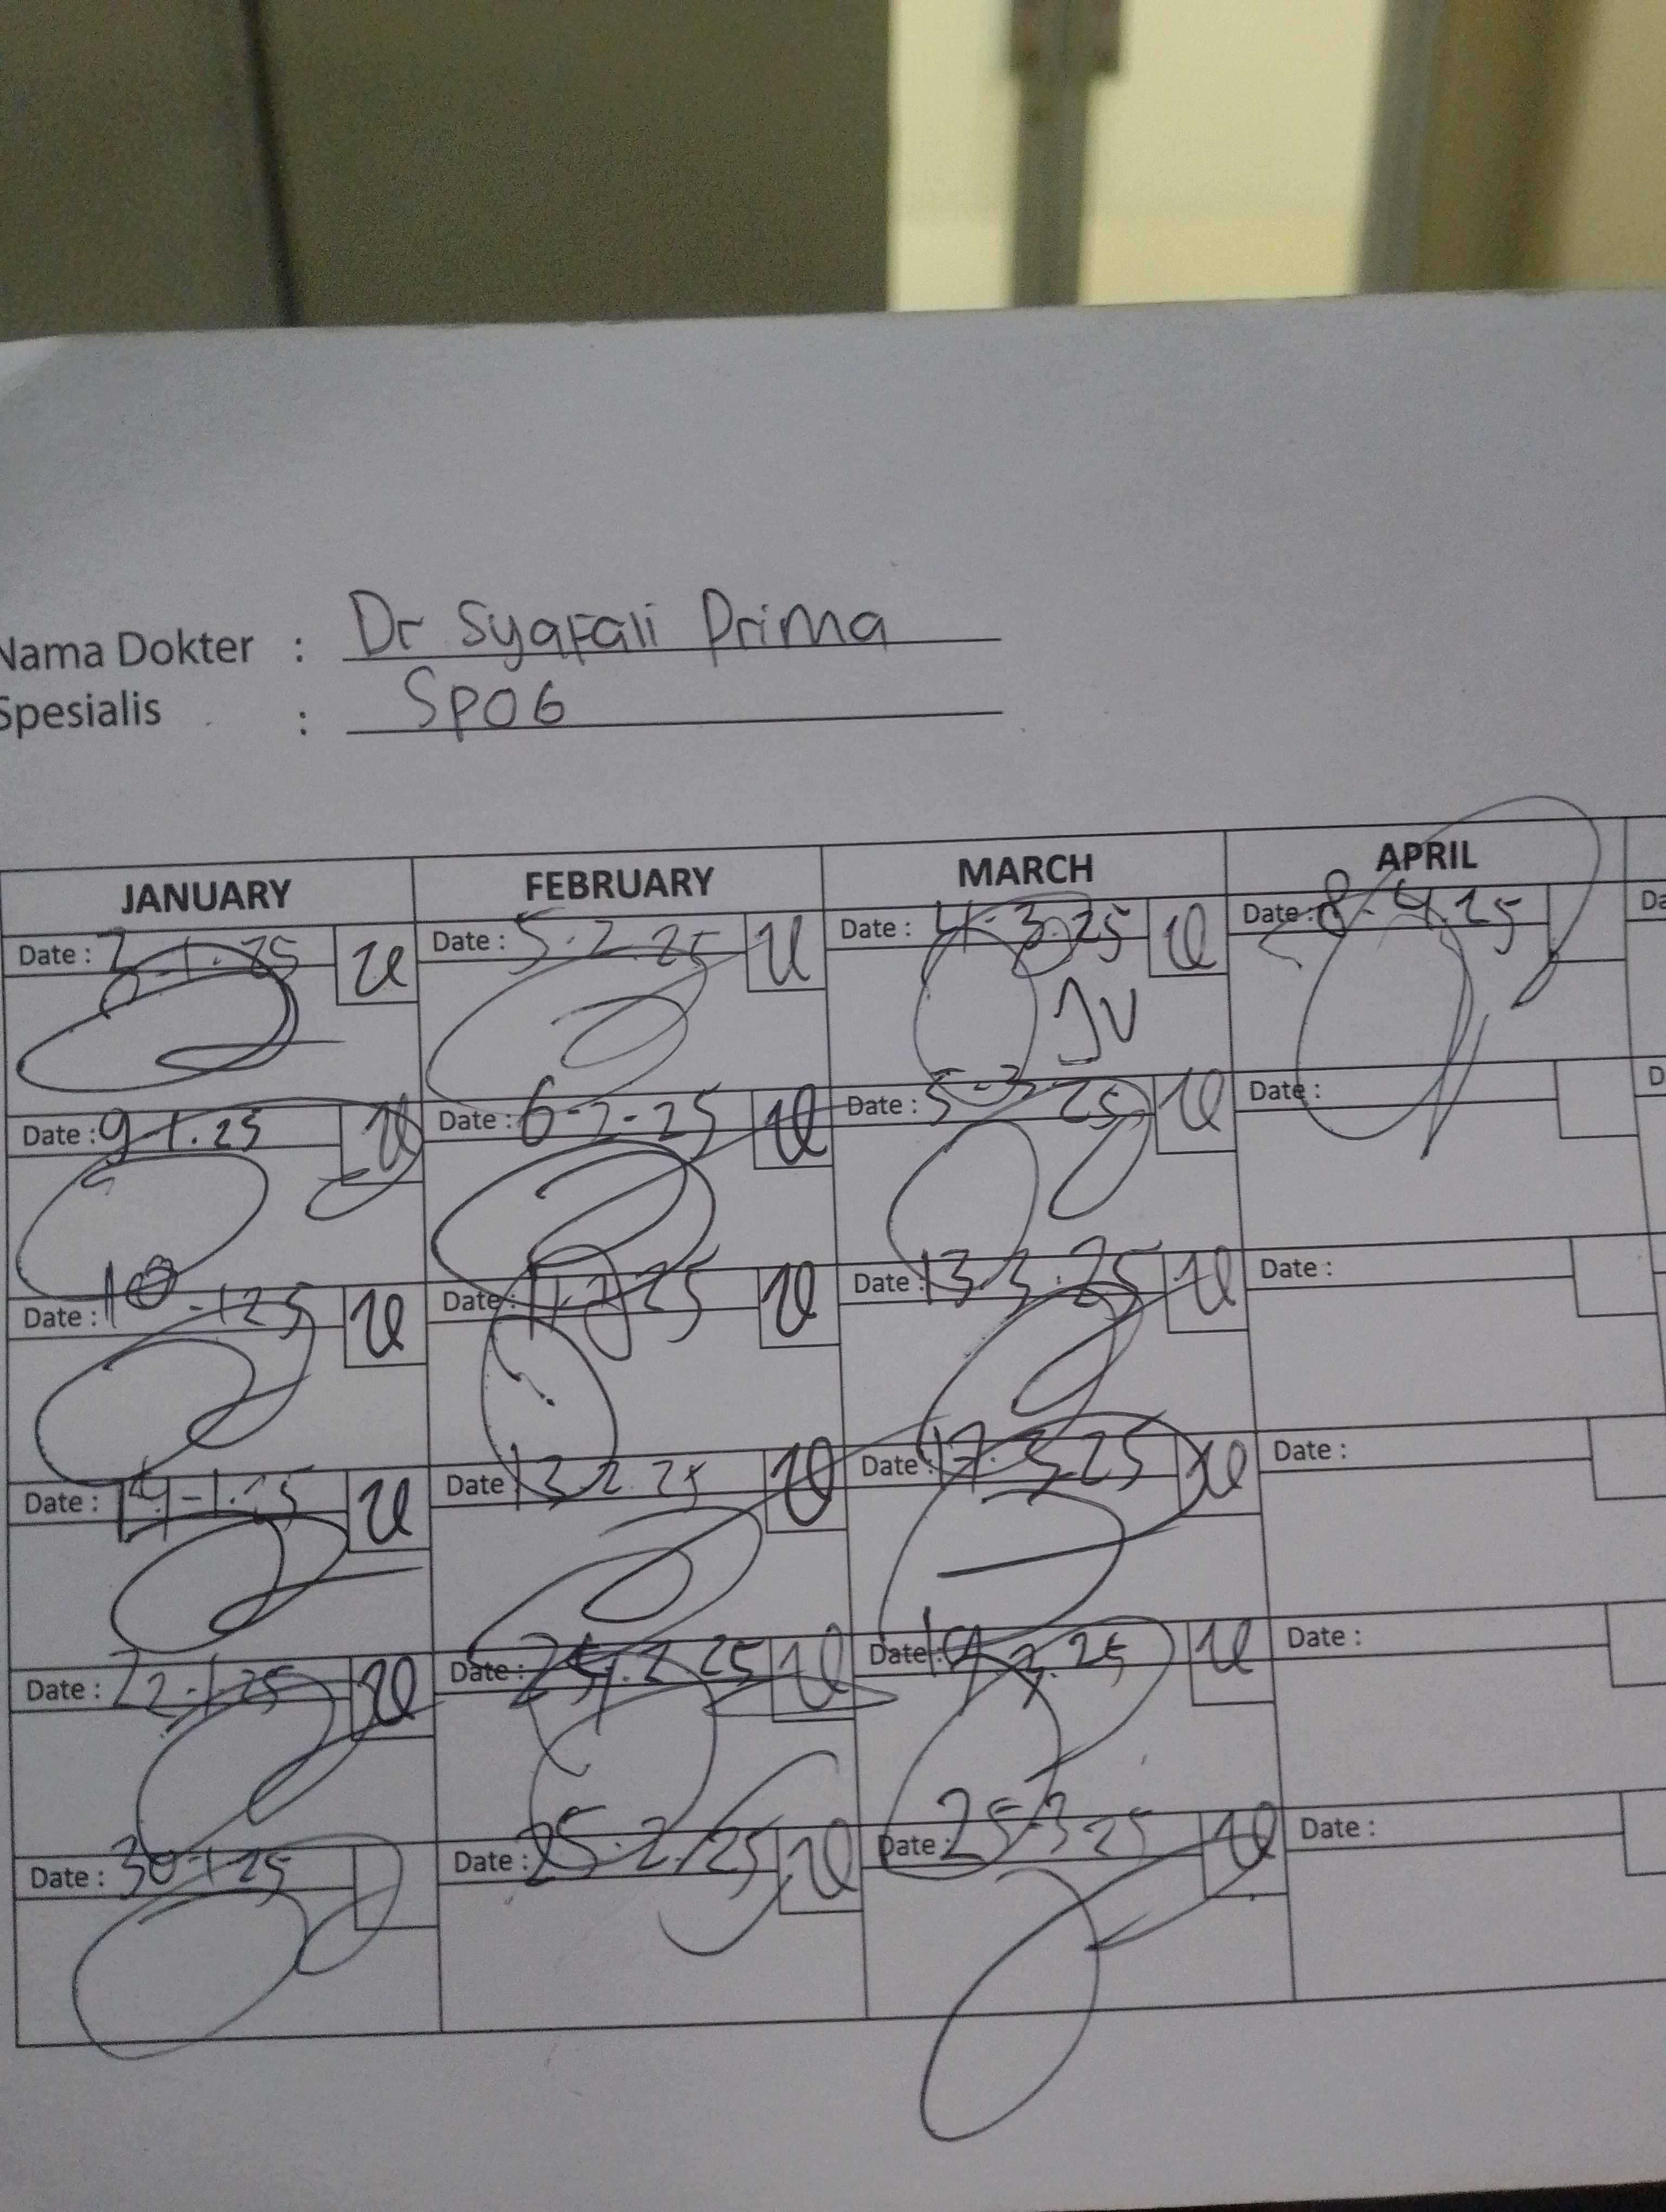 Nama Dokter : Dr Syafali Prima
Spesialis : SPOG
JANUARY FEBRUARY MARCH APRIL
Date : 7-1-25 Date : 5.2.25 Date : 4-3.25 Date : 8-4.25
JV
Date : 9-1.25 Date : 6-2-25 Date : 5-3 25 Date :
Date : 10-125 Date : 11.2.25 Date : 13.3.25 Date :
Date : 14-1.25 Date 13.2.25 Date : 17.3.25 Date :
Date : 22-1-25 Date : 24.2.25 Date : 19.3.25 Date :
Date : 30-1-25 Date : 25.2.25 Date : 25-3-25 Date :